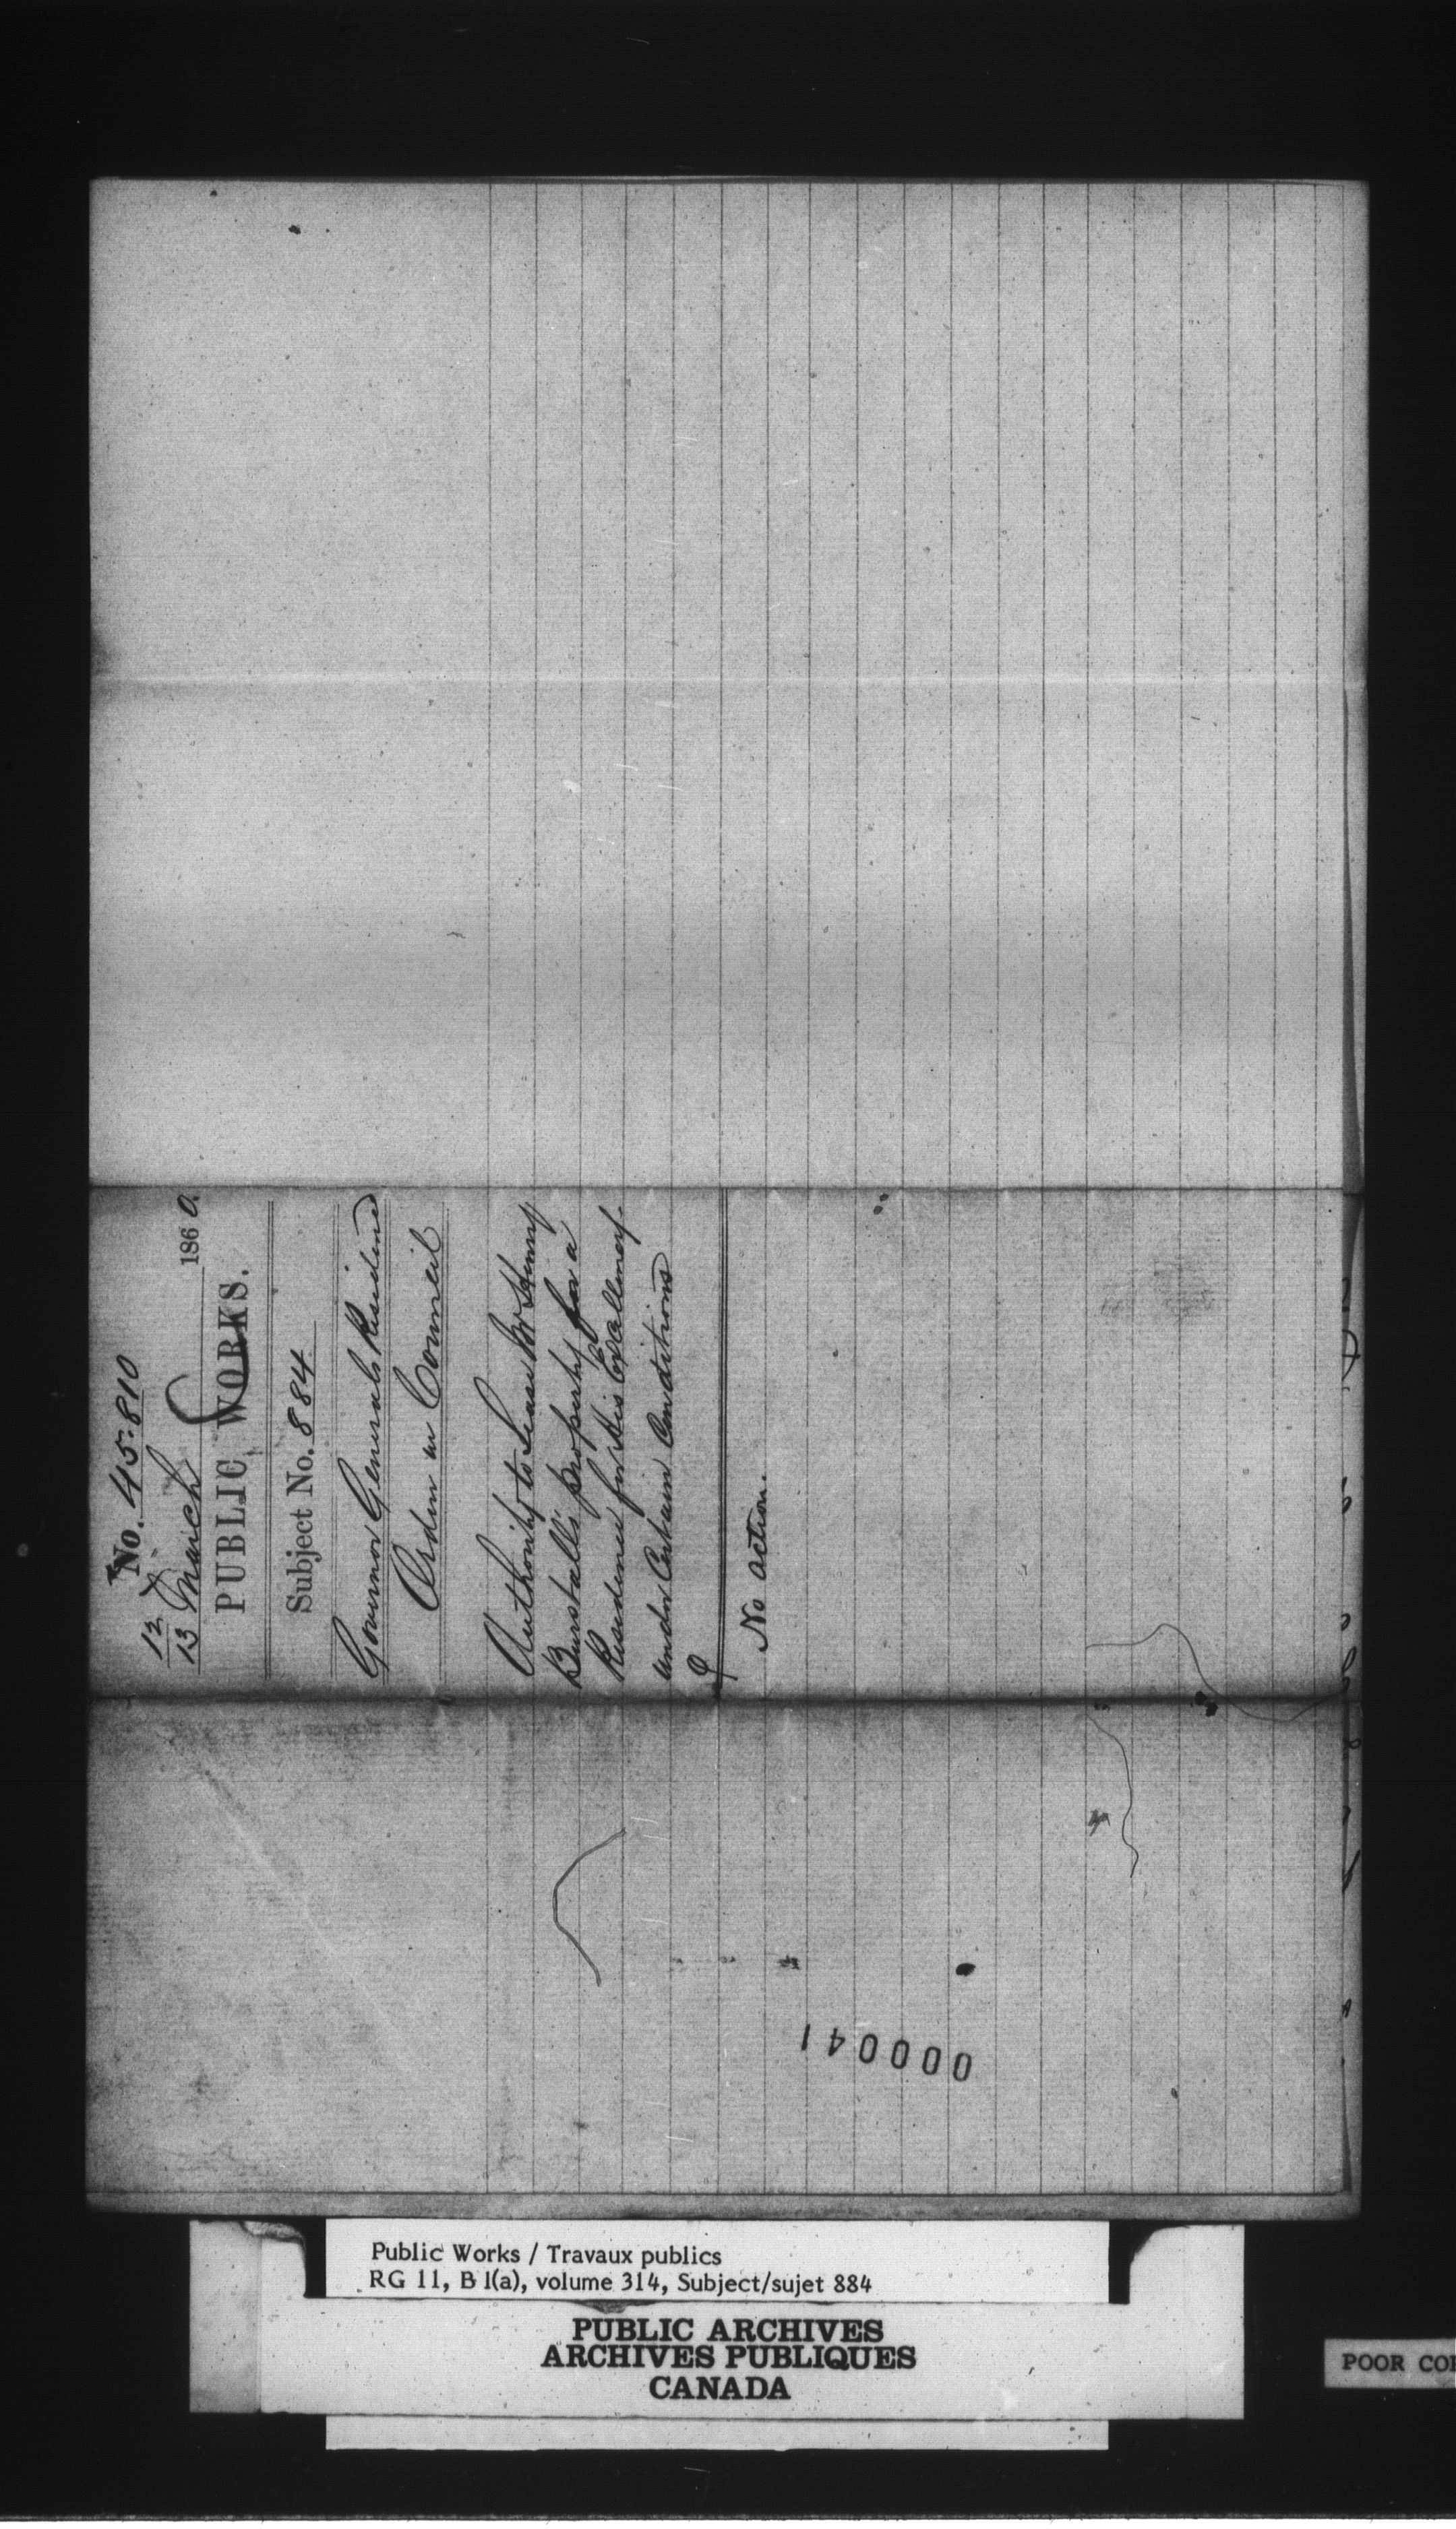 No. 45.810
12
13 March 1860.
PUBLIC WORKS.
Subject No. 884
Governor Generals Residence
Order in Council
Authority to Lease Mr Henry
Burstall's property for a
Residence for His Excellency.
under Certain Conditions
No action.
000041
Public Works / Travaux publics
RG 11, B 1(a), volume 314, Subject/sujet 884
PUBLIC ARCHIVES
ARCHIVES PUBLIQUES
CANADA
POOR CO